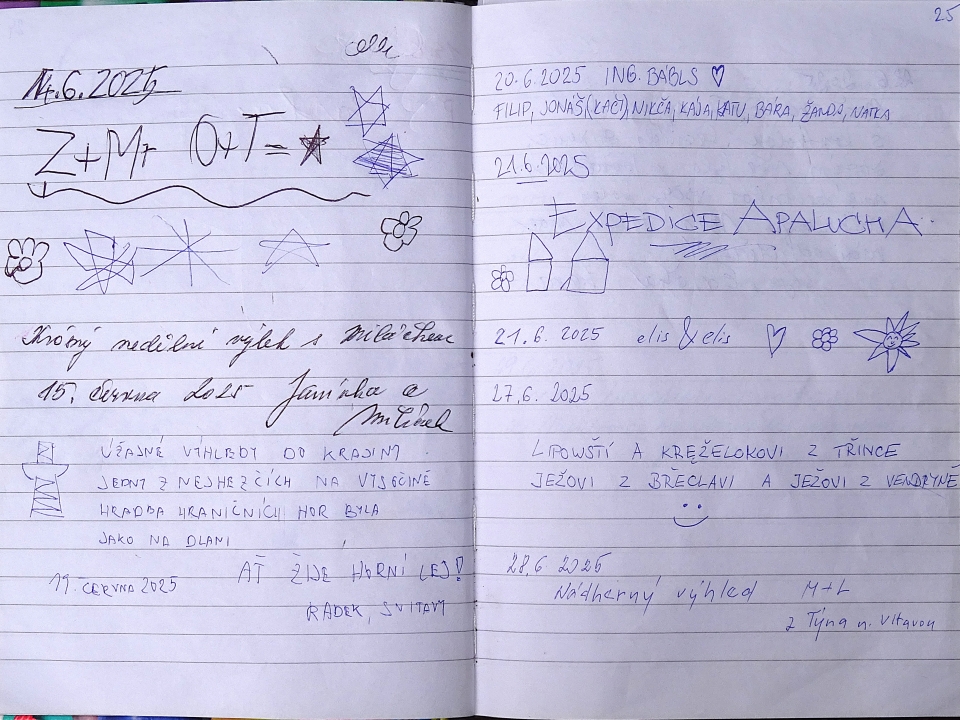 14.6.2025
Z+M+ O+T=
Krásný nedělní výlet s miláčkem
15. června 2025 Janinka a
Milánek
ÚŽASNÉ VÝHLEDY DO KRAJINY.
JEDNY Z NEJHEZČÍCH NA VYSOČINĚ
HRADBA HRANIČNÍCH HOR BYLA
JAKO NA DLANI
AŤ ŽIJE HORNÍ LES!
19. ČERVNA 2025
RADEK, SVITAVY
25
20.6.2025 ING. BÁBLS ♡
FILIP, JONÁŠ (KAČ), NIKČA, KÁJA, KATU, BÁRA, NATKA
21.6.2025
EXPEDICE APALUCHA
21.6.2025 elis & elis ♡
27.6.2025
LIPOWŠTÍ A KRĘŻELOKOVI Z TŘINCE
JEŽOVI Z BŘECLAVI A JEŽOVI Z VENDRYNĚ
28.6 2025
Nádherný výhled M+L
z Týna n. Vltavou